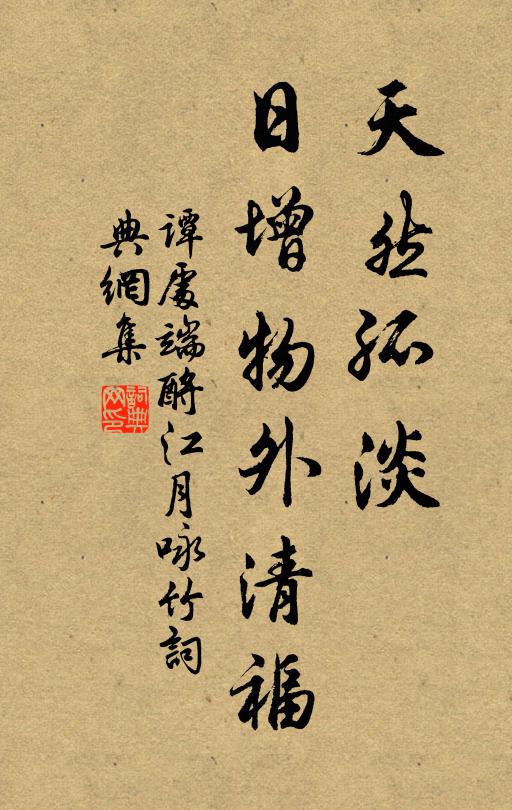 天然孤淡
日增物外清福
譚處端酹江月咏竹詞
典網集
詞典网印